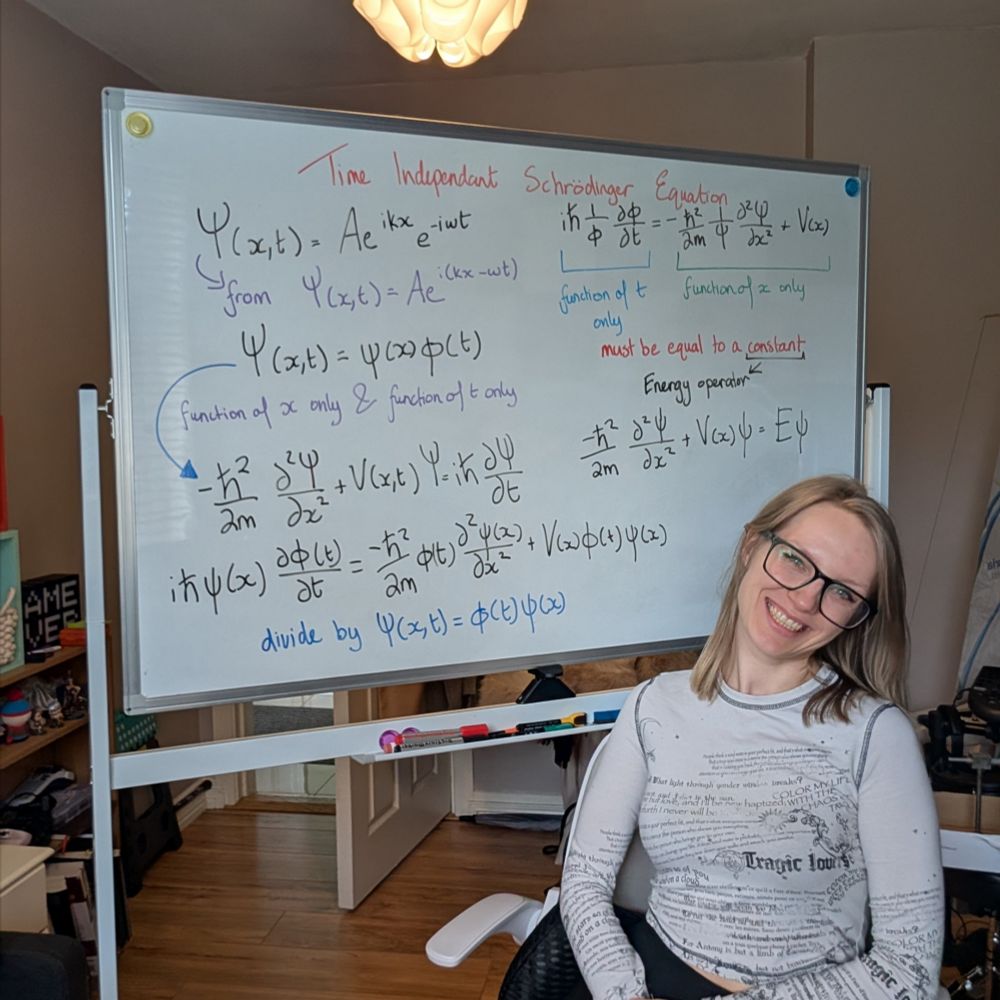 Time Independant Schrödinger Equation
Ψ(x,t) = Ae^{ikx} e^{-iωt}
from Ψ(x,t) = Ae^{i(kx-ωt)}
Ψ(x,t) = ψ(x) φ(t)
function of x only & function of t only
-ℏ²/2m ∂²Ψ/∂x² + V(x,t) Ψ = iℏ ∂Ψ/∂t
iℏ ψ(x) ∂φ(t)/∂t = -ℏ²/2m φ(t) ∂²ψ(x)/∂x² + V(x) φ(t) ψ(x)
divide by Ψ(x,t) = φ(t) ψ(x)
iℏ 1/φ ∂φ/∂t = -ℏ²/2m 1/ψ ∂²ψ/∂x² + V(x)
function of t only
function of x only
must be equal to a constant
Energy operator
-ℏ²/2m ∂²ψ/∂x² + V(x) ψ = Eψ
What light through yonder
COLOR MY
baptized WITH THE
CHAOS
Tragic lovers